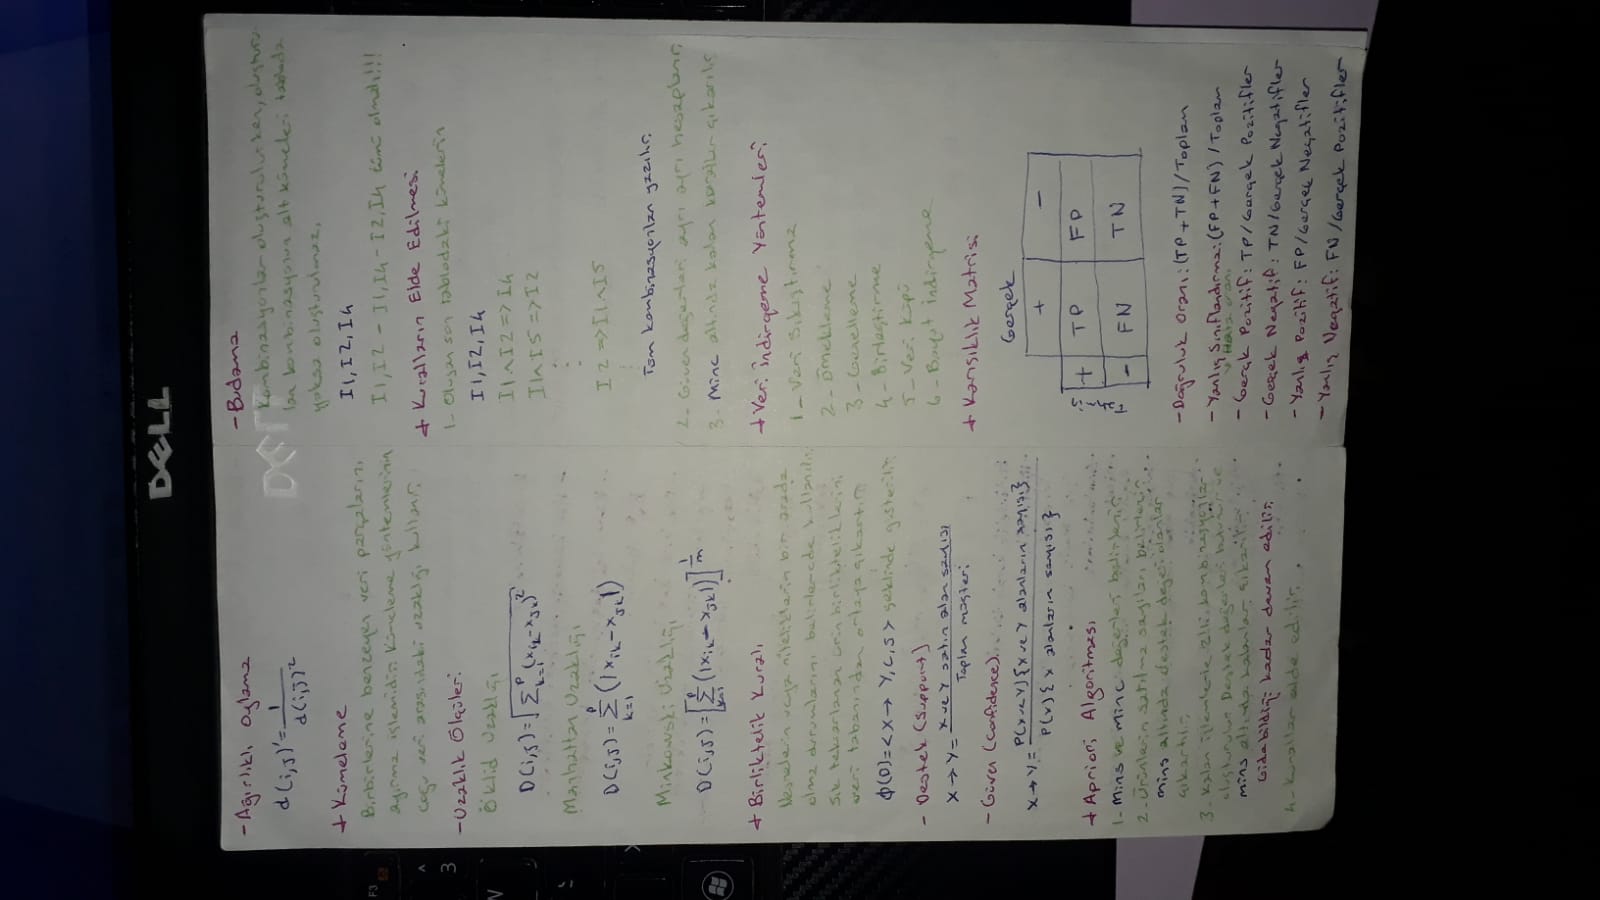 DELL
- Ağırlıklı Oylama
d(i,j)' = 1 / d(i,j)²
+ Kümeleme
Birbirlerine benzeyen veri parçalarını
ayırma işlemidir. Kümeleme yöntemlerinin
çoğu veri arasındaki uzaklığı kullanır.
- Uzaklık Ölçüleri
Öklid Uzaklığı
D(i,j) = √(Σ_{k=1}^{p} (x_ik - x_jk)²)
Manhattan Uzaklığı
D(i,j) = Σ_{k=1}^{p} (|x_ik - x_jk|)
Minkowski Uzaklığı
D(i,j) = [Σ_{k=1}^{p} (|x_ik - x_jk|)]^{1/m}
+ Birliktelik Kuralı
Nesnelerin veya niteliklerin bir arada
olma durumlarını belirlemede kullanılır.
Sık tekrarlanan ürün birlikteliklerini
veri tabanından ortaya çıkartır.
Φ(D) = <X → Y, C, S> şeklinde gösterilir.
- Destek (Support)
X → Y = X ve Y satın alan sayısı / Toplam müşteri
- Güven (Confidence)
X → Y = P(X ve Y) {X ve Y alanların sayısı} / P(X) {X alanların sayısı}
+ Apriori Algoritması
1- Mins ve Minc değerleri belirlenir
2- Ürünlerin satılma sayıları belirlenir
mins altında destek değeri olanlar
çıkartılır.
3- Kalan işlemlerle 2'li kombinasyonlar
oluşturulur Destek değerleri bulunur ve
mins altında kalanlar çıkarılır.
Gidebildiği kadar devam edilir.
4- Kurallar elde edilir.
- Budama
Kombinasyonlar oluşturulurken, oluşturu-
lan kombinasyonun alt kümeleri tabloda
yoksa oluşturulmaz.
I1, I2, I4
I1,I2 - I1,I4 - I2,I4 tümü olmalı!!!
+ Kuralların Elde Edilmesi
1- Oluşan son tablodaki kümelerin
I1, I2, I4
I1 ∧ I2 => I4
I1 ∧ I5 => I2
I2 => I1 ∧ I5
Tüm kombinasyonları yazılır.
2- Güven değerleri ayrı ayrı hesaplanır
3- Minc altında kalan kurallar çıkarılır
+ Veri İndirgeme Yöntemleri
1- Veri Sıkıştırma
2- Örnekleme
3- Genelleme
4- Birleştirme
5- Veri küpü
6- Boyut İndirgeme
+ Karışıklık Matrisi
Gerçek
+ -
Tahmin
+ TP FP
- FN TN
- Doğruluk Oranı: (TP + TN) / Toplam
- Yanlış Sınıflandırma: (FP + FN) / Toplam
Hata oranı
- Gerçek Pozitif: TP / Gerçek Pozitifler
- Gerçek Negatif: TN / Gerçek Negatifler
- Yanlış Pozitif: FP / Gerçek Negatifler
- Yanlış Negatif: FN / Gerçek Pozitifler